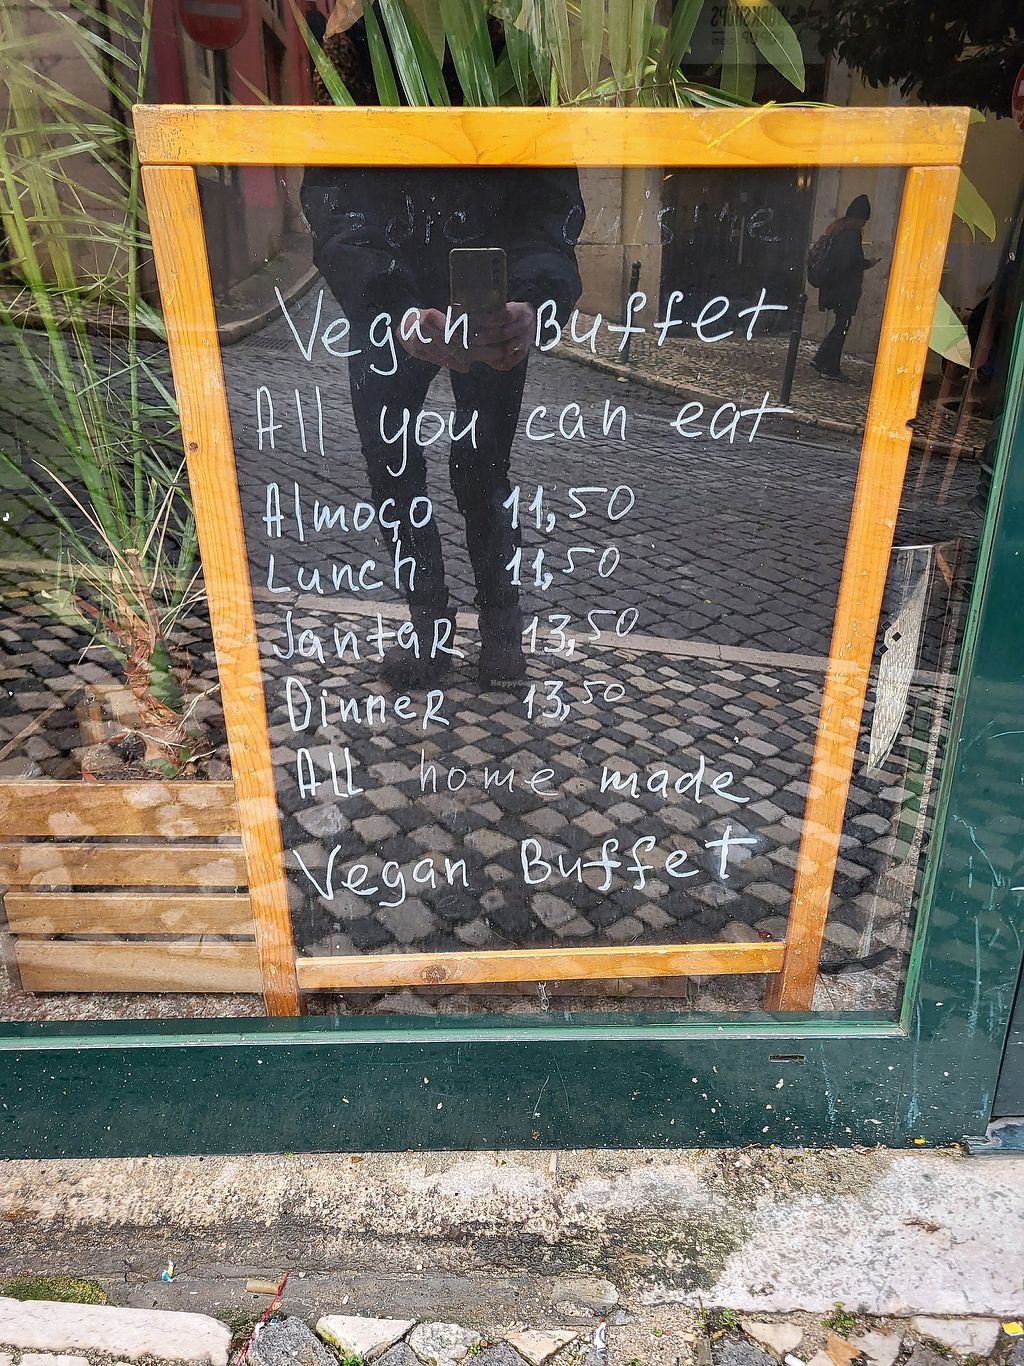 Vegan Buffet
All you can eat
Almoço 11,50
Lunch 11,50
Jantar 13,50
Dinner 13,50
All home made
Vegan Buffet